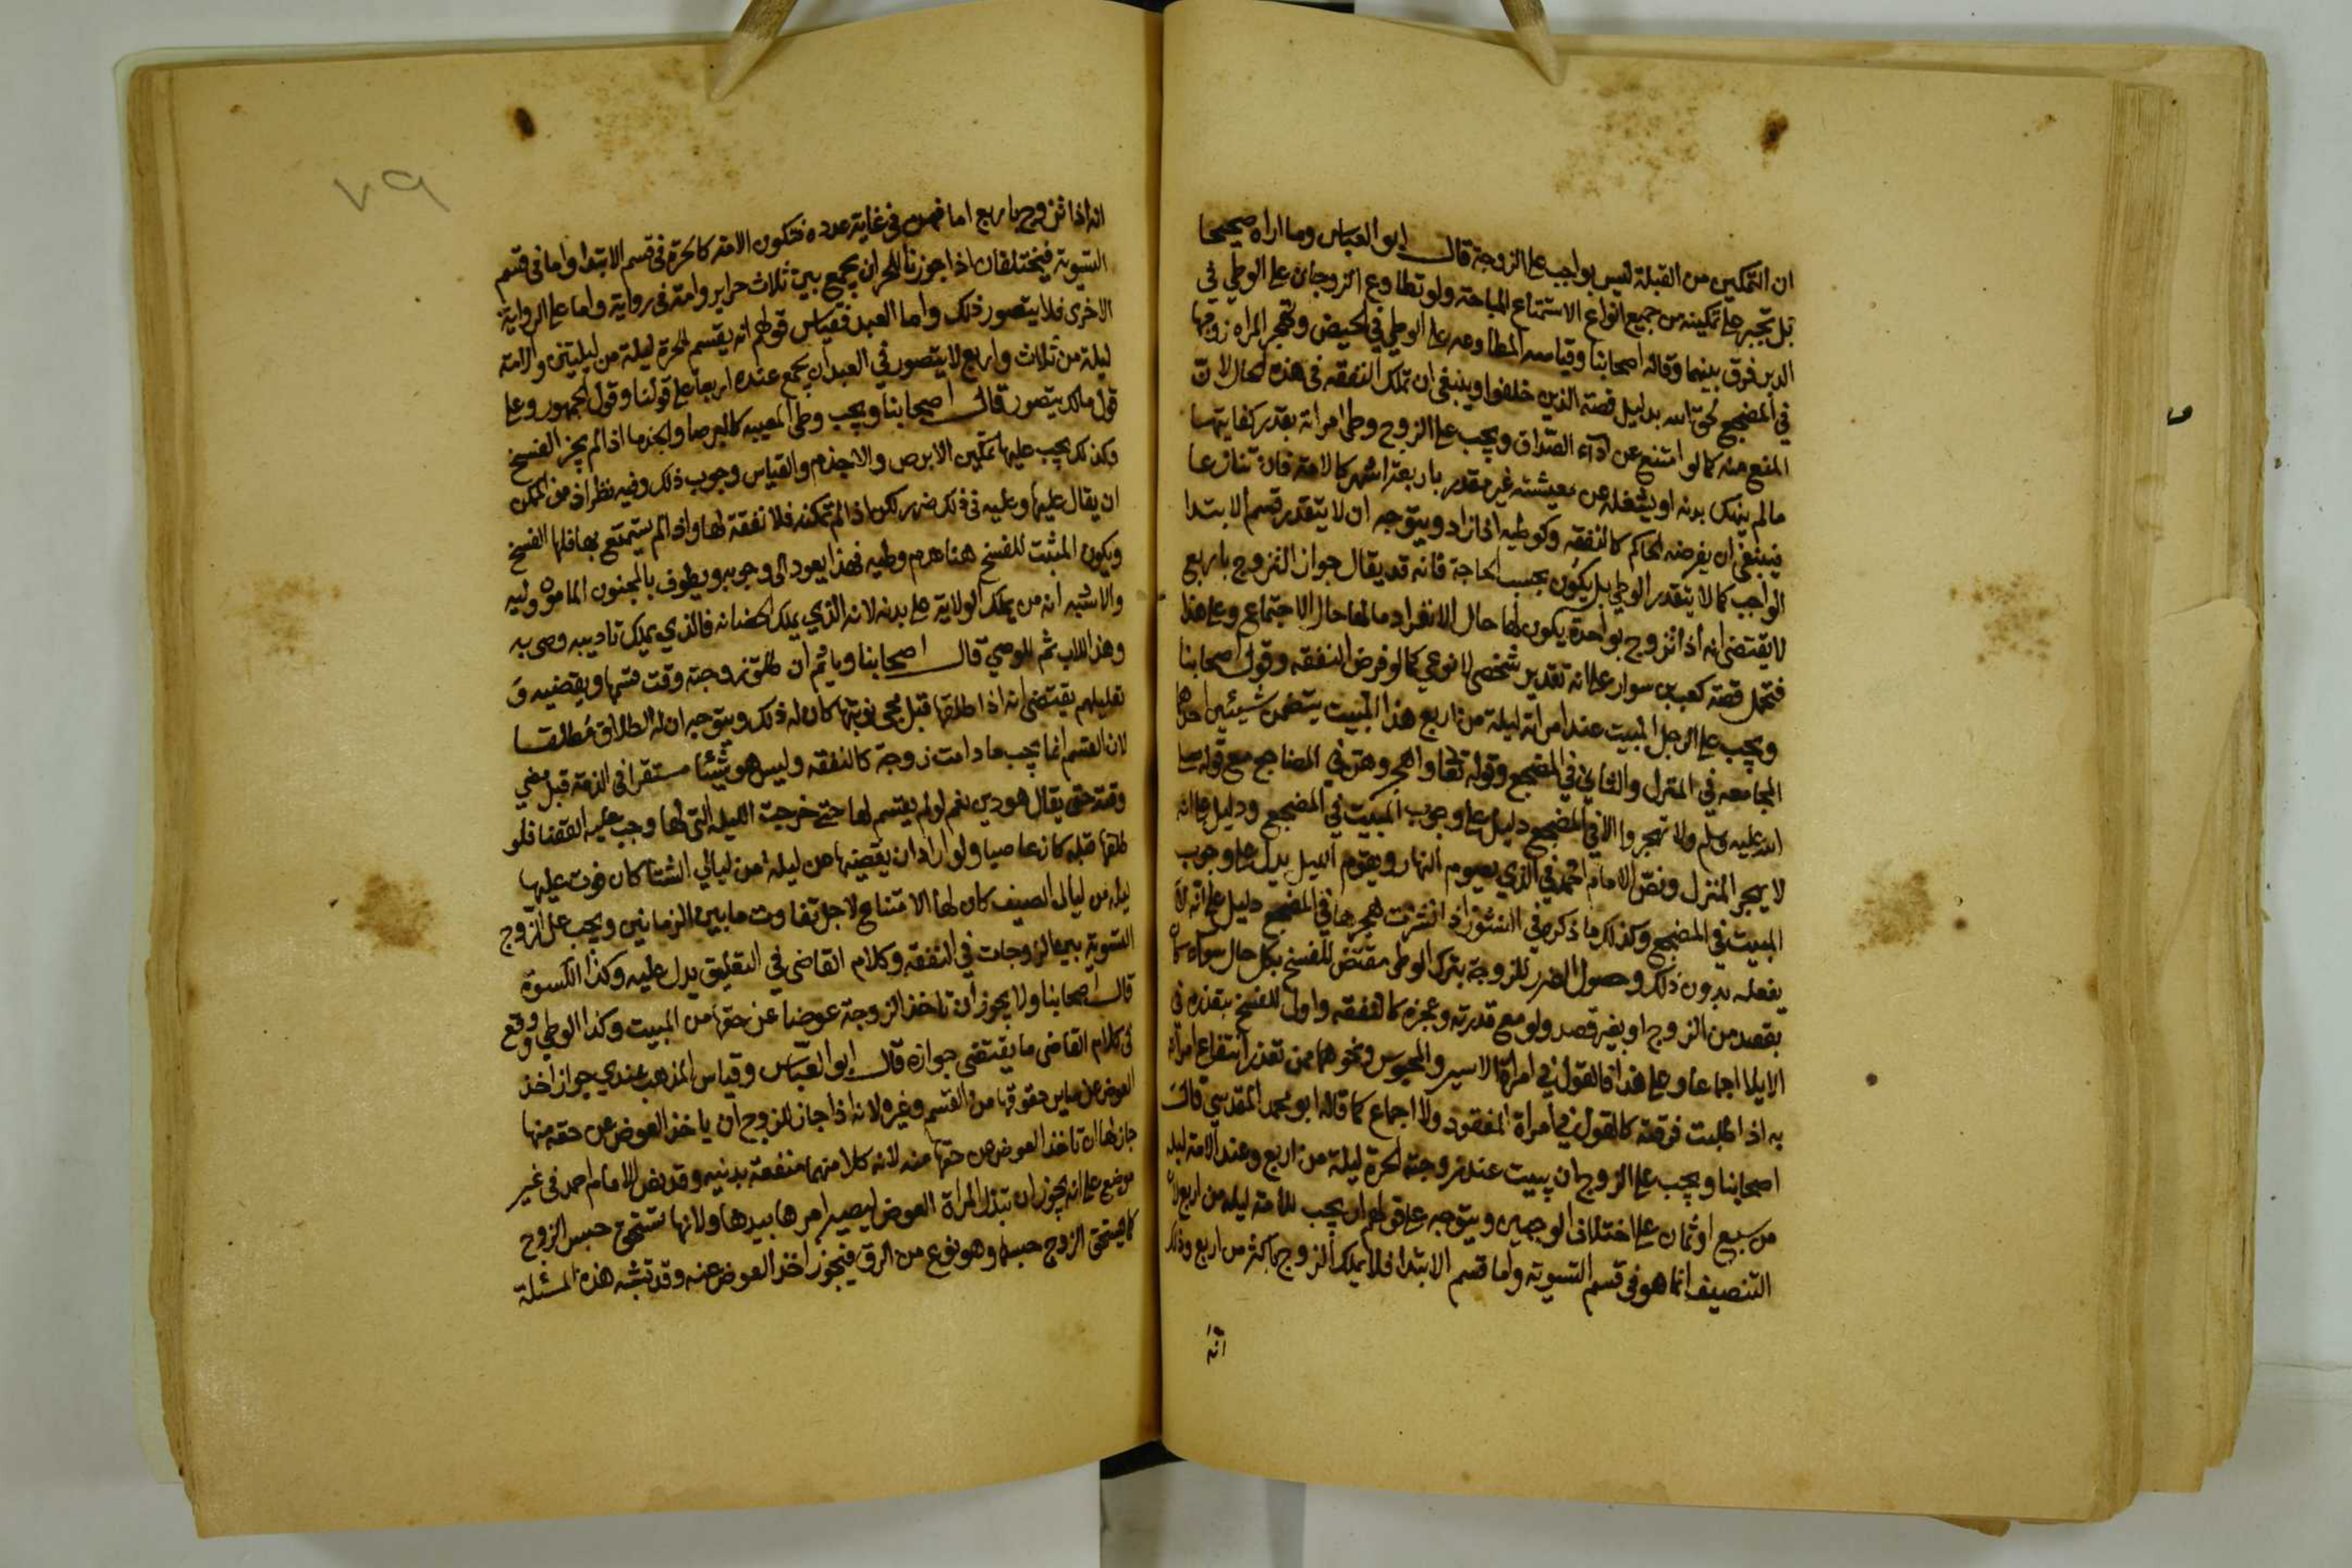 ان التمكين من القبلة ليس بواجب على الزوجة قال ابو العباس وما اراه صحيحا
بل تجبر على تمكينه من جميع انواع الاستمتاع المباحة ولو تطاوع الزوجان على الوطي في
الدبر فرق بينهما وقاله اصحابنا وقياسه المطاوعه على الوطي في الحيض وتهجر المراه زوجها
في المضجع لحق الله بدليل قصة الذين خلفوا وينبغي ان تملك النفقه في هذه الحال لان
المنع منه كما لو امتنع عن اداء الصداق ويجب على الزوج وطى امراته بقدر كفايتها
مالم ينهك بدنه او يشغله عن معيشته غير مقدر باربعة اشهر كالامة فان تنازعا
فينبغي ان يفرضه الحاكم كالنفقه وكوطيه اذا زاد ويتوجه ان لا يتقدر قسم الابتدا
الواجب كما لا يتقدر الوطي بل يكون بحسب الحاجة فانه قد يقال جواز التزوج باربع
لا يقتضي انه اذا تزوج بواحدة يكون لها حال الانفراد ما لها حال الاجتماع وعلى هذا
فتحمل قصة كعب بن سوار على انه تقدير شخصي لا نوعي كما لو فرض النفقه وقول اصحابنا
ويجب على الرجل المبيت عند امراته ليلة من اربع هذا المبيت يتضمن شيئين احدها
المجامعه في المنزل والثاني في المضجع وقوله تعالى واهجروهن في المضاجع مع قوله صلى
الله عليه وسلم ولا تهجروا الا في المضجع دليل على وجوب المبيت في المضجع ودليل على انه
لا يهجر المنزل ونص الامام احمد في الذي يصوم النهار ويقوم الليل يدل على وجوب
المبيت في المضجع وكذلك ما ذكره في النشوز اذا نشزت هجرها في المضجع دليل على انه لا
يفعله بدون ذلك وحصول الضرر للزوجة بترك الوطي مقتض للفسخ بكل حال سواء كان
بقصد من الزوج او بغير قصد ولو مع قدرته وعجزه كالنفقه واولى للفسخ بتعذره في
الايلا اجماعا وعلى هذا فالقول في امراة الاسير والمحبوس ونحوهما ممن تعذر انتفاع امراته
به اذا طلبت فرقته كالقول في امراة المفقود ولا اجماع كما قاله ابو محمد المقدسي قال
اصحابنا ويجب على الزوج ان يبيت عند زوجته الحرة ليلة من اربع وعند الامة ليله
من سبع او ثمان على اختلاف الوجهين ويتوجه على قولهم ان يجب للامة ليله من اربع لان
التنصيف انما هو في قسم التسوية واما قسم الابتدا فلا يملك الزوج باكثر من اربع وذلك
انه
٧٩
انه اذا تزوج باربع اما فهن في غاية عدده فتكون الامة كالحرة في قسم الابتدا واما في قسم
التسوية فيختلفان اذا جوزنا للحر ان يجمع بين ثلاث حراير وامة في رواية واما على الرواية
الاخرى فلا يتصور ذلك واما العبد فقياس قولهم انه يقسم للحرة ليلة من ليلتين والامة
ليلة من ثلاث واربع لا يتصور في العبد ان يجمع عنده اربعا على قولنا وقول الجمهور وعلى
قول مالك يتصور قال اصحابنا ويجب وطى المعيبه كالبرصا والجذما اذا لم يجز الفسخ
وكذلك يجب عليها تمكين الابرص والاجذم والقياس وجوب ذلك وفيه نظر اذ من الممكن
ان يقال عليها وعليه في ذلك ضرر لكن اذا لم تمكنه فلا نفقة لها واذا لم يستمتع بها فلها الفسخ
ويكون المثبت للفسخ هنا عدم وطيه فهذا يعود الى وجوبه ويطوف بالمجنون المامون وليه
والاشبه انه من يملك الولاية على بدنه لانه الذي يملك الحضانه فالذي يملك تاديبه وصى به
وهذا للاب ثم للوصي قال اصحابنا وياثم ان طلق زوجته وقت قسمها ويقضيه و
تعليلهم يقتضي انه اذا طلقها قبل مجي نوبتها كان له ذلك ويتوجه ان له الطلاق مطلقا
لان القسم انما يجب ما دامت زوجة كالنفقه وليس هو شيئا مستقرا في الذمة قبل مضي
وقته حتى يقال هو دين نعم لو لم يقسم لها حتى خرجت الليله التي لها وجب عليه القضا فلو
طلقها قبله كان عاصيا ولو اراد ان يقضيها عن ليله من ليالي الشتا كان فوت عليها
ليله من ليال الصيف كان لها الامتناع لاجل تفاوت ما بين الزمانين ويجب على الزوج
التسوية بين الزوجات في النفقه وكلام القاضي في التعليق يدل عليه وكذا الكسوة
قال اصحابنا ولا يجوز ان تاخذ الزوجة عوضا عن حقها من المبيت وكذا الوطي ووقع
في كلام القاضي ما يقتضي جوازه قال ابو العباس وقياس المذهب عندي جواز اخذ
العوض عن ساير حقوقها من القسم وغيره لانه اذا جاز للزوج ان ياخذ العوض عن حقه منها
جاز لها ان تاخذ العوض عن حقها منه لانه كلا منهما منفعة بدنيه وقد نص الامام احمد في غير
موضع على انه يجوز ان تبذل المراة العوض ليصير امرها بيدها ولانها تستحق حبس الزوج
كما يستحق الزوج حبسها وهو نوع من الرق فيجوز اخذ العوض عنه وقد تشبه هذه المسئلة